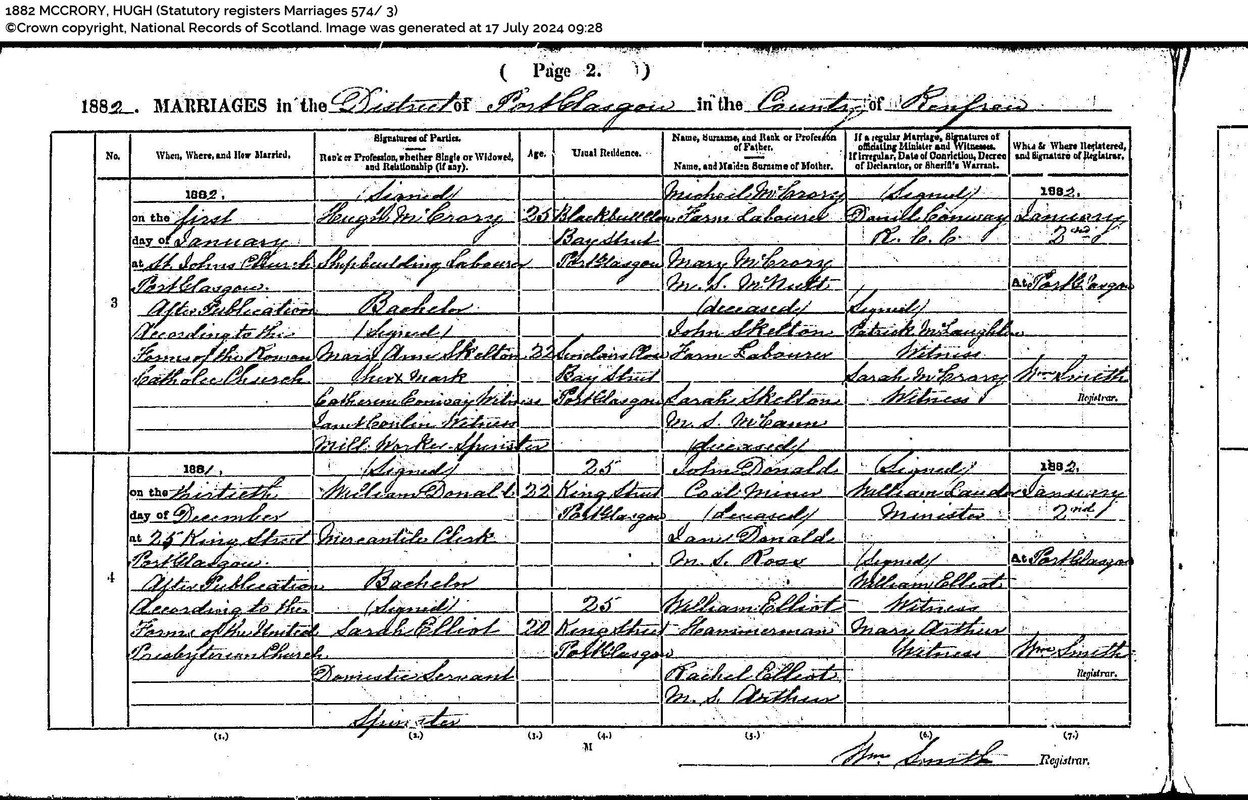 1882 MCCRORY, HUGH (Statutory registers Marriages 574/ 3)
©Crown copyright, National Records of Scotland. Image was generated at 17 July 2024 09:28
( Page 2. )
1882. MARRIAGES in the District of Port Glasgow in the County of Renfrew
No.
When, Where, and How Married.
Signatures of Parties.
Rank or Profession, whether Single or Widowed,
and Relationship (if any).
Age.
Usual Residence.
Name, Surname, and Rank or Profession
of Father.
Name, and Maiden Surname of Mother.
If a regular Marriage, Signatures of
officiating Minister and Witnesses.
If irregular, Date of Conviction, Decree
of Declarator, or Sheriff's Warrant.
When & Where Registered,
and Signature of Registrar.
3
1882.
on the first
day of January
at St. Johns Church
Port Glasgow.
After Publication
According to the
Forms of the Roman
Catholic Church
(Signed)
Hugh McCrory
Shipbuilding Labourer
Bachelor
(Signed)
Mary Ann Skelton
her x mark
Catherine Conway Witness
Janet Conlin Witness
Mill Worker Spinster
25
22
Blackbull Close
Bay Street
Port Glasgow
Sinclairs Close
Bay Street
Port Glasgow
Michael McCrory
Farm Labourer
Mary McCrory
M. S. McNutt
(deceased)
John Skelton
Farm Labourer
Sarah Skelton
M. S. McCann
(deceased)
(Signed)
Daniel Conway
R. C. C.
(Signed)
Patrick McLaughlin
Witness
Sarah McCrory
Witness
1882.
January
2nd
At Port Glasgow
Wm Smith
Registrar.
4
1881.
on the thirtieth
day of December
at 25 King Street
Port Glasgow.
After Publication
According to the
Forms of the United
Presbyterian Church.
(Signed)
William Donald
Mercantile Clerk
Bachelor
(Signed)
Sarah Elliot
Domestic Servant
Spinster
22
20
25
King Street
Port Glasgow
25
King Street
Port Glasgow
John Donald
Coal Miner
(deceased)
Jane Donald
M. S. Ross
William Elliot
Hammerman
Rachel Elliot
M. S. Arthur
(Signed)
William
Minister
(Signed)
William Elliot
Witness
Mary Arthur
Witness
1882.
January
2nd
At Port Glasgow
Wm Smith
Registrar.
(1.)
(2.)
(3.)
(4.)
(5.)
(6.)
(7.)
M
Wm Smith Registrar.